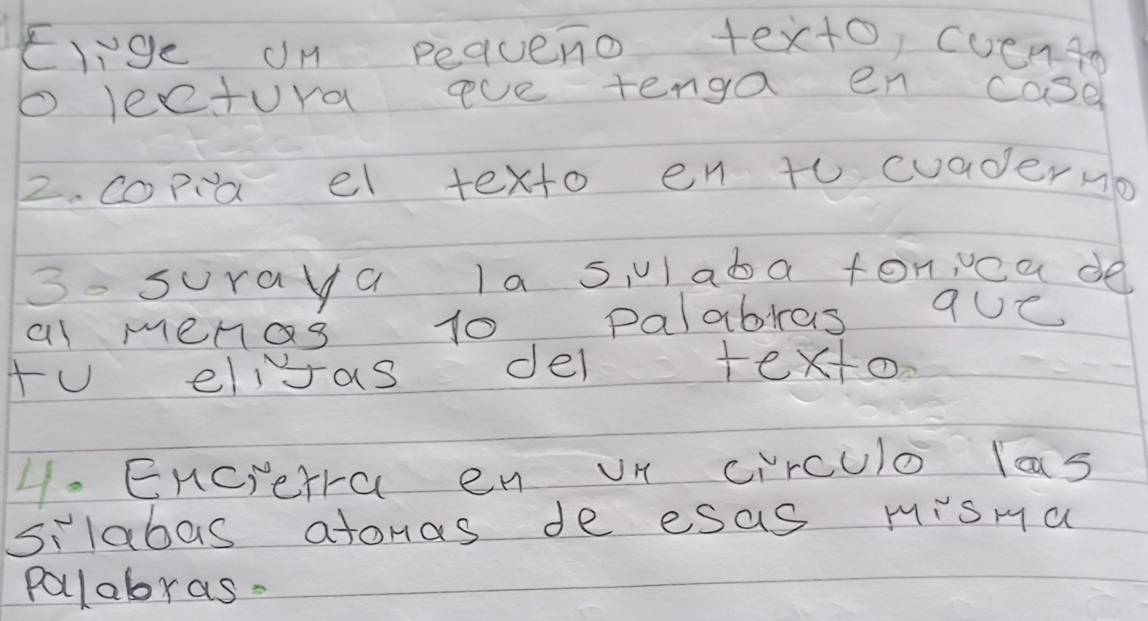 1. Elige un pequeño texto, cuento
o lectura que tenga en casa
2. copia el texto en tu cuaderno
3. suraya la silaba tonica de
al menas 10 palabras que
tu elijas del texto.
4. Encierra en un circulo las
silabas atonas de esas misma
palabras.